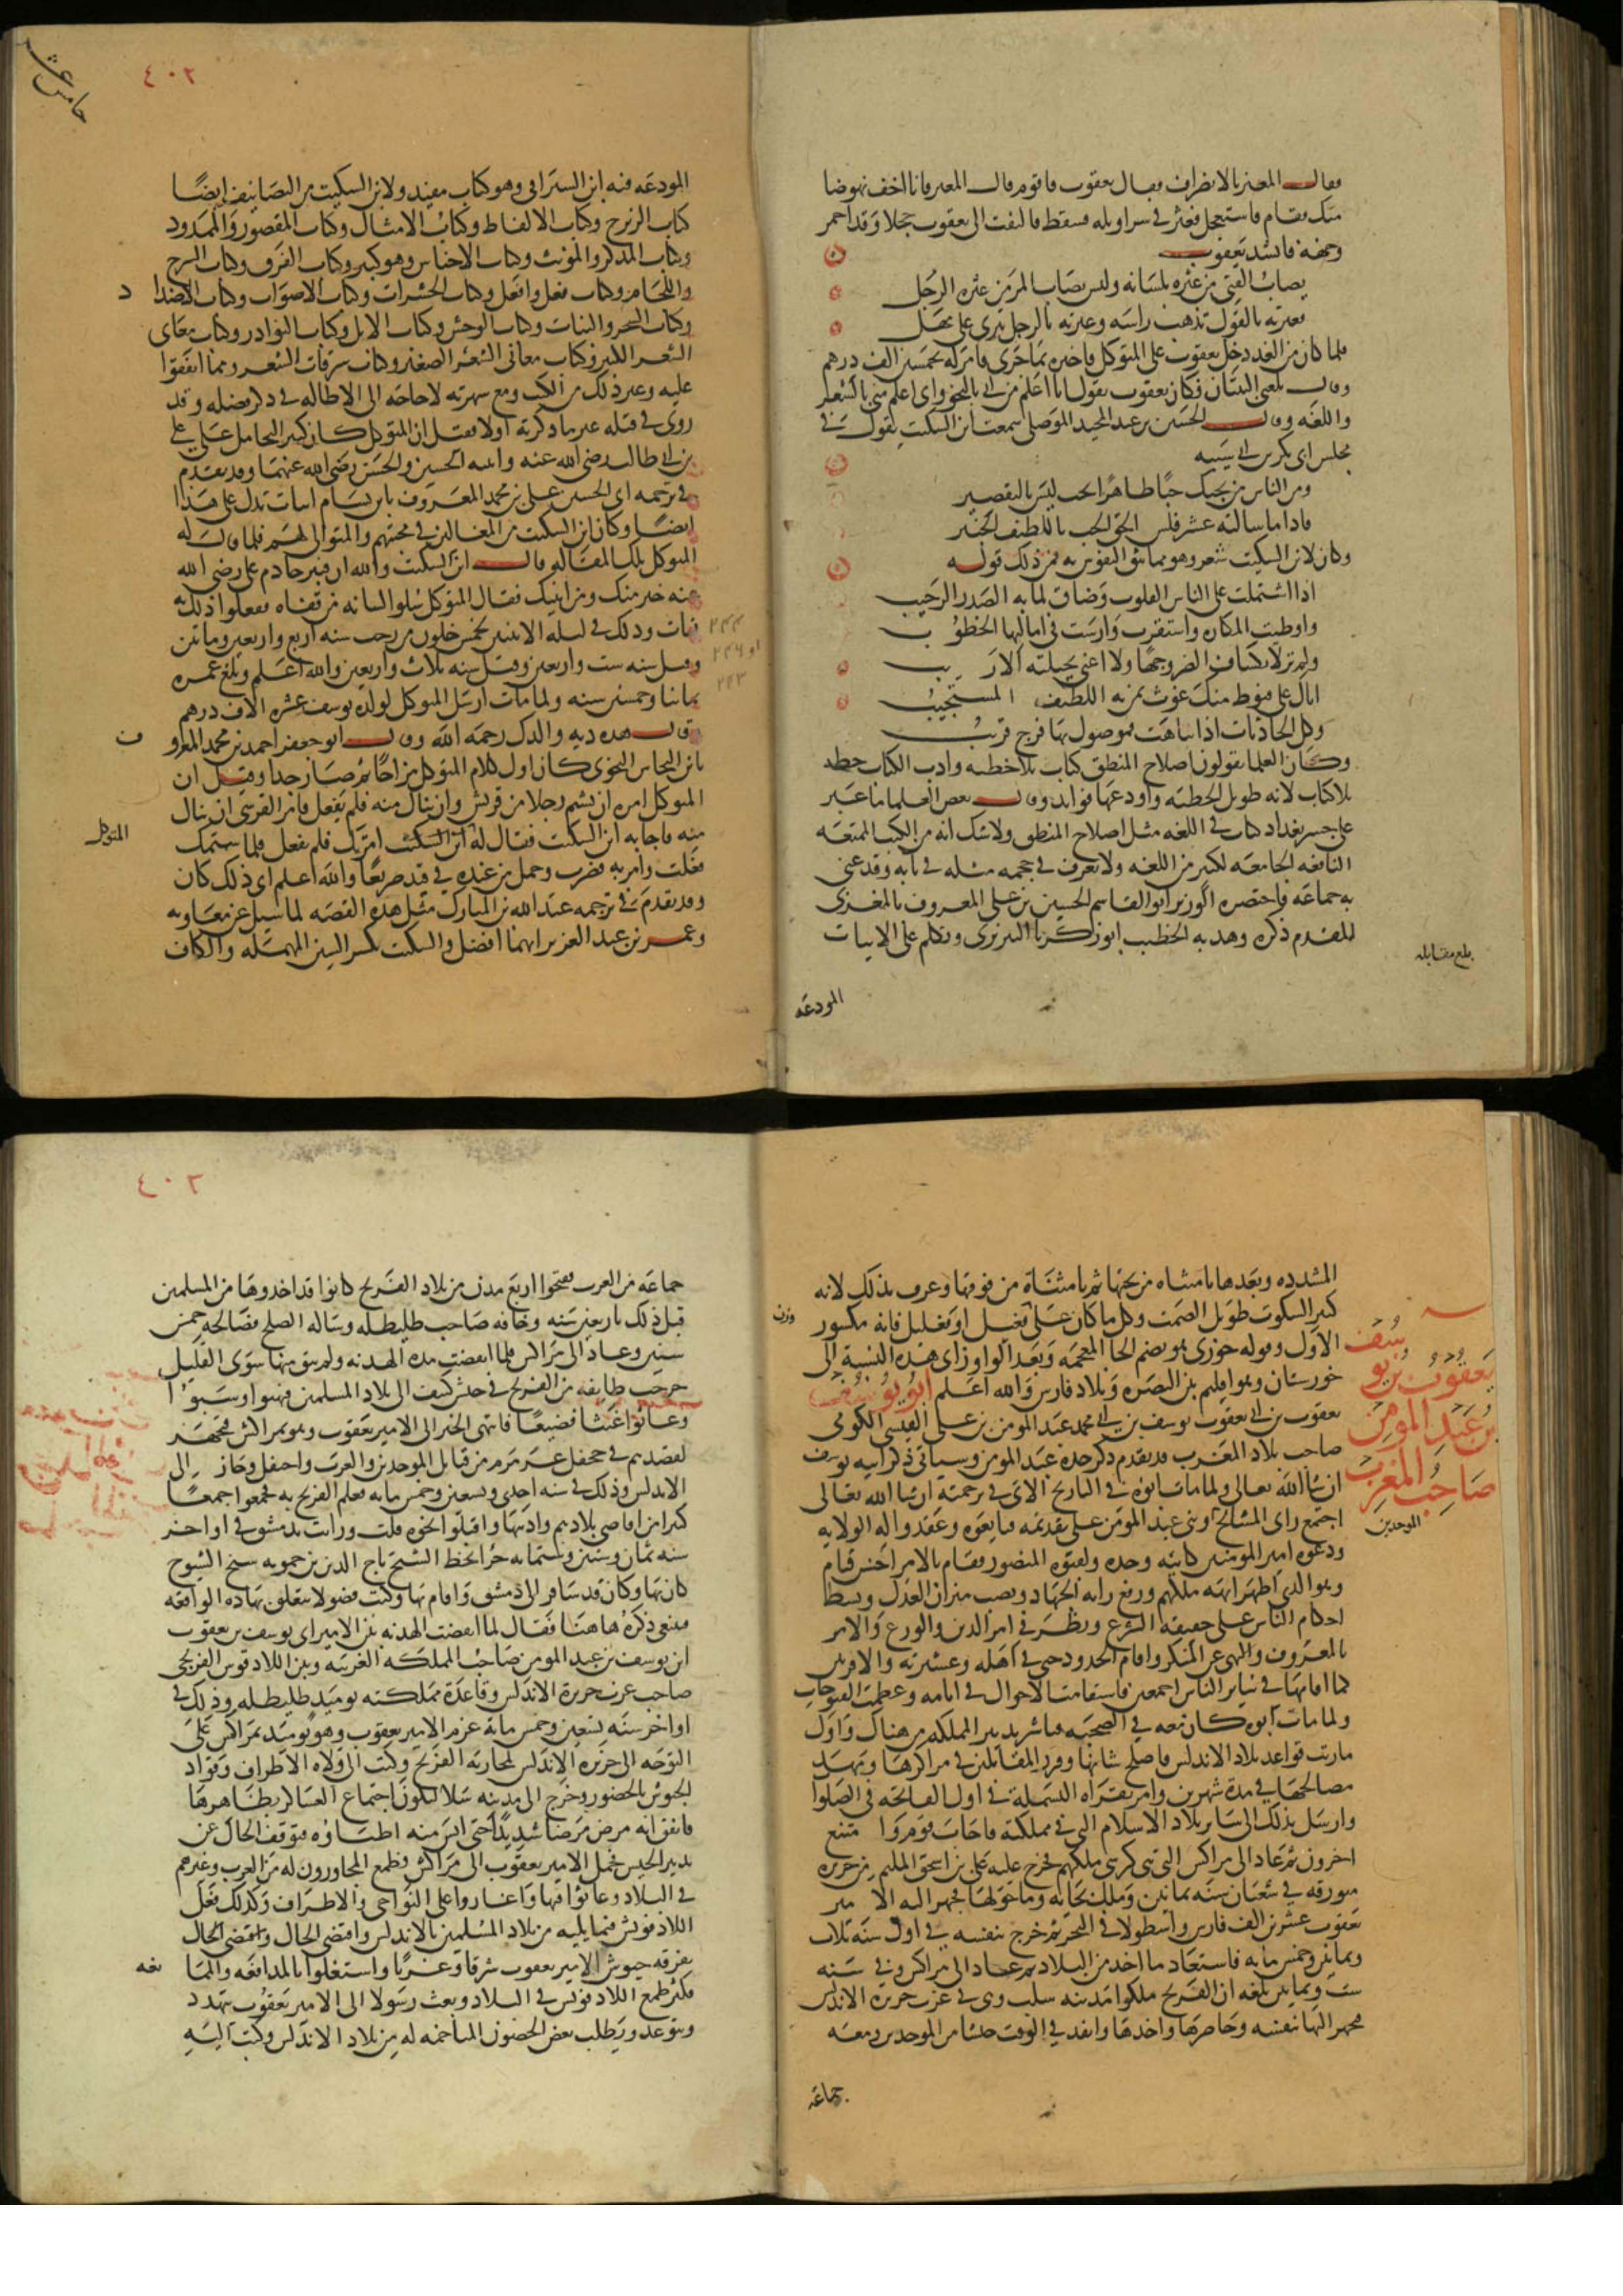 فقال المعتز بالانصراف فقال يعقوب فاقوم قال المعتز فانا اخف نهوضا
منك فقام فاستعجل فعثر في سراويله فسقط فالتفت الى يعقوب خجلا وقد احمر
وجهه فانشد يعقوب
يصاب الفتى من عثرة بلسانه وليس يصاب المرء من عثرة الرجل
فعثرته بالقول تذهب راسه وعثرته بالرجل تبرى على مهل
فلما كان من الغد دخل يعقوب على المتوكل فاخبره بما جرى فامر له بخمسين الف درهم
وقال بلغني البيتان فكان يعقوب يقول انا اعلم من ابي بالنحو وابي اعلم مني بالشعر
واللغه وقال الحسين بن عبد المجيد الموصلي سمعت ابن السكيت يقول في
مجلس ابي بكر بن ابي شيبه
ومن الناس من يحبك حبا ظاهر الحب ليس بالتقصير
فاذا ما سالته عشر فلس الحق الحب باللطيف الخبير
وكان لابن السكيت شعر وهو مما تثق النفوس به فمن ذلك قوله
اذا اشتملت على الناس القلوب وضاق لما به الصدر الرحيب
واوطنت المكاره واستقرت وارست في اماكنها الخطوب
ولم تر لانكشاف الضر وجها ولا اغنى بحيلته الاريب
اتاك على قنوط منك غوث يمن به اللطيف المستجيب
وكل الحادثات اذا تناهت فموصول بها فرج قريب
وكان العلما يقولون اصلاح المنطق كتاب بلا خطبه وادب الكتاب خطبه
بلا كتاب لانه طويل الخطبه واودعها فوايد وقال بعض العلما ما عبر
على جسر بغداد كتاب في اللغه مثل اصلاح المنطق ولا شك انه من الكتب الممتعه
النافعه الجامعه لكثير من اللغه ولا نعرف في حجمه مثله في بابه وقد عنى
به جماعه واختصره الوزير ابو القاسم الحسين بن علي المعروف بالمغربي
المقدم ذكره وهذبه الخطيب ابو زكريا التبريزي وتكلم على الابيات
بلغ مقابله
المودعه
٤٠٢
المودعه فيه ابن السيرافي وهو كتاب مفيد ولابن السكيت من التصانيف ايضا
كتاب الزبرج وكتاب الالفاظ وكتاب الامثال وكتاب المقصور والممدود
وكتاب المذكر والمونث وكتاب الاجناس وهو كبير وكتاب الفرق وكتاب السرج
واللجام وكتاب فعل وافعل وكتاب الحشرات وكتاب الاصوات وكتاب الاضداد
وكتاب الشجر والنبات وكتاب الوحش وكتاب الابل وكتاب النوادر وكتاب معاني
الشعر الكبير وكتاب معاني الشعر الصغير وكتاب سرقات الشعر وما اتفقوا
عليه وغير ذلك من الكتب ومع شهرته لا حاجه الى الاطاله في ذكر فضله وقد
روى في قتله غير ما ذكرته اولا فقيل ان المتوكل كان كثير التحامل على علي
بن ابي طالب رضي الله عنه وابنيه الحسين والحسن رضي الله عنهما وقد تقدم
في ترجمه ابي الحسن علي بن محمد المعروف بابن بسام ابيات تدل على هذا
ايضا وكان ابن السكيت من المغالين في محبتهم والتوالي لهم فلما قال له
المتوكل تلك المقاله قال ابن السكيت والله ان قنبر خادم علي رضي الله
عنه خير منك ومن ابنيك فقال المتوكل سلوا لسانه من قفاه ففعلوا ذلك به
فمات وذلك في ليله الاثنين لخمس خلون من رجب سنه اربع واربعين وماتين
وقيل سنه ست واربعين وقيل سنه ثلاث واربعين والله اعلم وبلغ عمره
ثمانيا وخمسين سنه ولما مات ارسل المتوكل لولده يوسف عشره الاف درهم
وقال هذه ديه والدك رحمه الله وقال ابو جعفر احمد بن محمد المعروف
بابن النحاس النحوي كان اول كلام المتوكل مزاحا ثم صار جدا وقيل ان
المتوكل امره ان يشتم رجلا من قريش وان ينال منه فلم يفعل فامر القرشي ان ينال
منه فاجابه ابن السكيت فقال له المتوكل امرتك فلم تفعل فلما شتمك
فعلت وامر به فضرب وحمل من عنده في قد صريعا والله اعلم اي ذلك كان
وقد تقدم في ترجمه عبد الله بن المبارك مثل هذه القصه لما سيل عن معاويه
وعمر بن عبد العزيز ايهما افضل والسكيت بكسر السين المهمله والكاف
المشدده وبعدها يا مثناه من تحتها ثم تا مثناة من فوقها وعرف بذلك لانه
كثير السكوت طويل الصمت وكل ما كان على وزن فعيل او فعليل فانه مكسور
الاول وقوله خوزي هو بضم الخا المعجمه وبعد الواو زاي هذه النسبة الى
خوزستان وهو اقليم بين البصره وبلاد فارس والله اعلم ابو يوسف
يعقوب بن ابي يعقوب يوسف بن ابي محمد عبد المومن بن علي القيسي الكومي
صاحب بلاد المغرب قد تقدم ذكر جده عبد المومن وسياتي ذكر ابيه يوسف
ان شا الله تعالى ولما مات ابوه في التاريخ الاتي في ترجمته ان شا الله تعالى
اجتمع راي المشايخ وبني عبد المومن على تقدمته فبايعوه وعقدوا له الولايه
ودعوه امير المومنين كابيه وجده ولقبوه المنصور فقام بالامر احسن قيام
وهو الذي اظهر ابهه ملكهم ورفع رايه الجهاد ونصب ميزان العدل وبسط
احكام الناس على حقيقه الشرع ونظر في امر الدين والورع والامر
بالمعروف والنهي عن المنكر واقام الحدود حتى في اهله وعشيرته والاقربين
كما اقامها في ساير الناس اجمعين فاستقامت الاحوال في ايامه وعظمت الفتوحات
ولما مات ابوه كان معه في الصحبه فباشر تدبير المملكه من هناك واول
ما رتب قواعد بلاد الاندلس فاصلح شانها وقرر المقاتلين في مراكزها ومهد
مصالحها في مدة شهرين وامر بقراه البسملة في اول الفاتحه في الصلوا
وارسل بذلك الى ساير بلاد الاسلام التي في مملكته فاجاب قوم وامتنع
اخرون ثم عاد الى مراكش التي هي كرسي ملكهم فخرج عليه علي بن اسحق الملثم من جزيره
ميورقه في شعبان سنه ثمانين وملك بجايه وما حولها فجهز اليه الامير
يعقوب عشرين الف فارس واسطولا في البحر ثم خرج بنفسه في اول سنه ثلاث
وثمانين وخمس مايه فاستعاد ما اخذ من البلاد ثم عاد الى مراكش وفي سنه
ست وثمانين بلغه ان الفرنج ملكوا مدينه شلب وهي في غرب جزيره الاندلس
فتجهز اليها بنفسه وحاصرها واخذها وانفذ في الوقت جيشا من الموحدين ومعه
يعقوب بن يوسف
بن عبد المومن
صاحب المغرب
الموحدين
جماعه
٤٠٣
جماعه من العرب ففتحوا اربع مدن من بلاد الفرنج كانوا قد اخذوها من المسلمين
قبل ذلك باربعين سنه وخافه صاحب طليطله وساله الصلح فصالحه خمس
سنين وعاد الى مراكش فلما انقضت مده الهدنه ولم يبق منها سوى القليل
خرجت طايفه من الفرنج في جيش كثيف الى بلاد المسلمين فنهبوا وسبوا
وعاثوا عيثا فضيعا فانتهى الخبر الى الامير يعقوب وهو بمراكش فتجهز
لقصدهم في جحفل عرمرم من قبايل الموحدين والعرب واحتفل وجاز الى
الاندلس وذلك في سنه احدى وتسعين وخمس مايه فعلم الفرنج به فجمعوا جمعا
كثيرا من اقاصي بلادهم وادانيها واقبلوا نحوه قلت ورايت بدمشق في اواخر
سنه ثمان وستين وستمايه جزءا بخط الشيخ تاج الدين بن حمويه شيخ الشيوخ
كان بها وكان قد سافر الى دمشق واقام بها وكتب فصولا تتعلق بهاده الواقعه
فينبغي ذكره هاهنا فقال لما انقضت الهدنه بين الامير ابي يوسف يعقوب
ابن يوسف بن عبد المومن صاحب المملكه الغربيه وبين الادفونس الفرنجي
صاحب غرب جزيرة الاندلس وقاعدة مملكته يوميذ طليطله وذلك في
اواخر سنه تسعين وخمس مايه عزم الامير يعقوب وهو يوميذ بمراكش على
التوجه الى جزيره الاندلس لمحاربه الفرنج وكتب الى ولاه الاطراف وقواد
الجيوش بالحضور وخرج الى مدينه سلا ليكون اجتماع العساكر بظاهرها
فاتفق انه مرض مرضا شديدا حتى ايس منه اطباوه فتوقف الحال عن
تدبير الجيش فحمل الامير يعقوب الى مراكش فطمع المجاورون له من العرب وغيرهم
في البلاد وعاثوا فيها واغاروا على النواحي والاطراف وكذلك فعل
الادفونش فيما يليه من بلاد المسلمين بالاندلس واقتضى الحال واقتضى الحال
تفرقه جيوش الامير يعقوب شرقا وغربا واشتغلوا بالمدافعه والممانعه
فكثر طمع الادفونس في البلاد وبعث رسولا الى الامير يعقوب يتهدد
ويتوعد ويطلب بعض الحصون المتاخمه له من بلاد الاندلس وكتب اليه